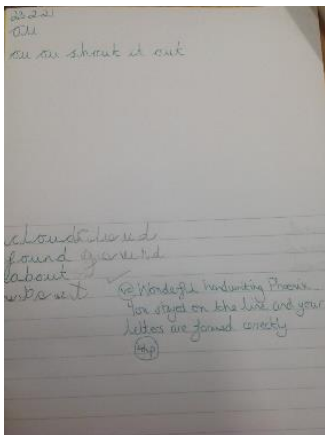 23.2.21
ou
ou ou shout it out
cloud cloud
found found
about
about
Wonderful handwriting Phoenix
You stayed on the line and your
letters are formed correctly